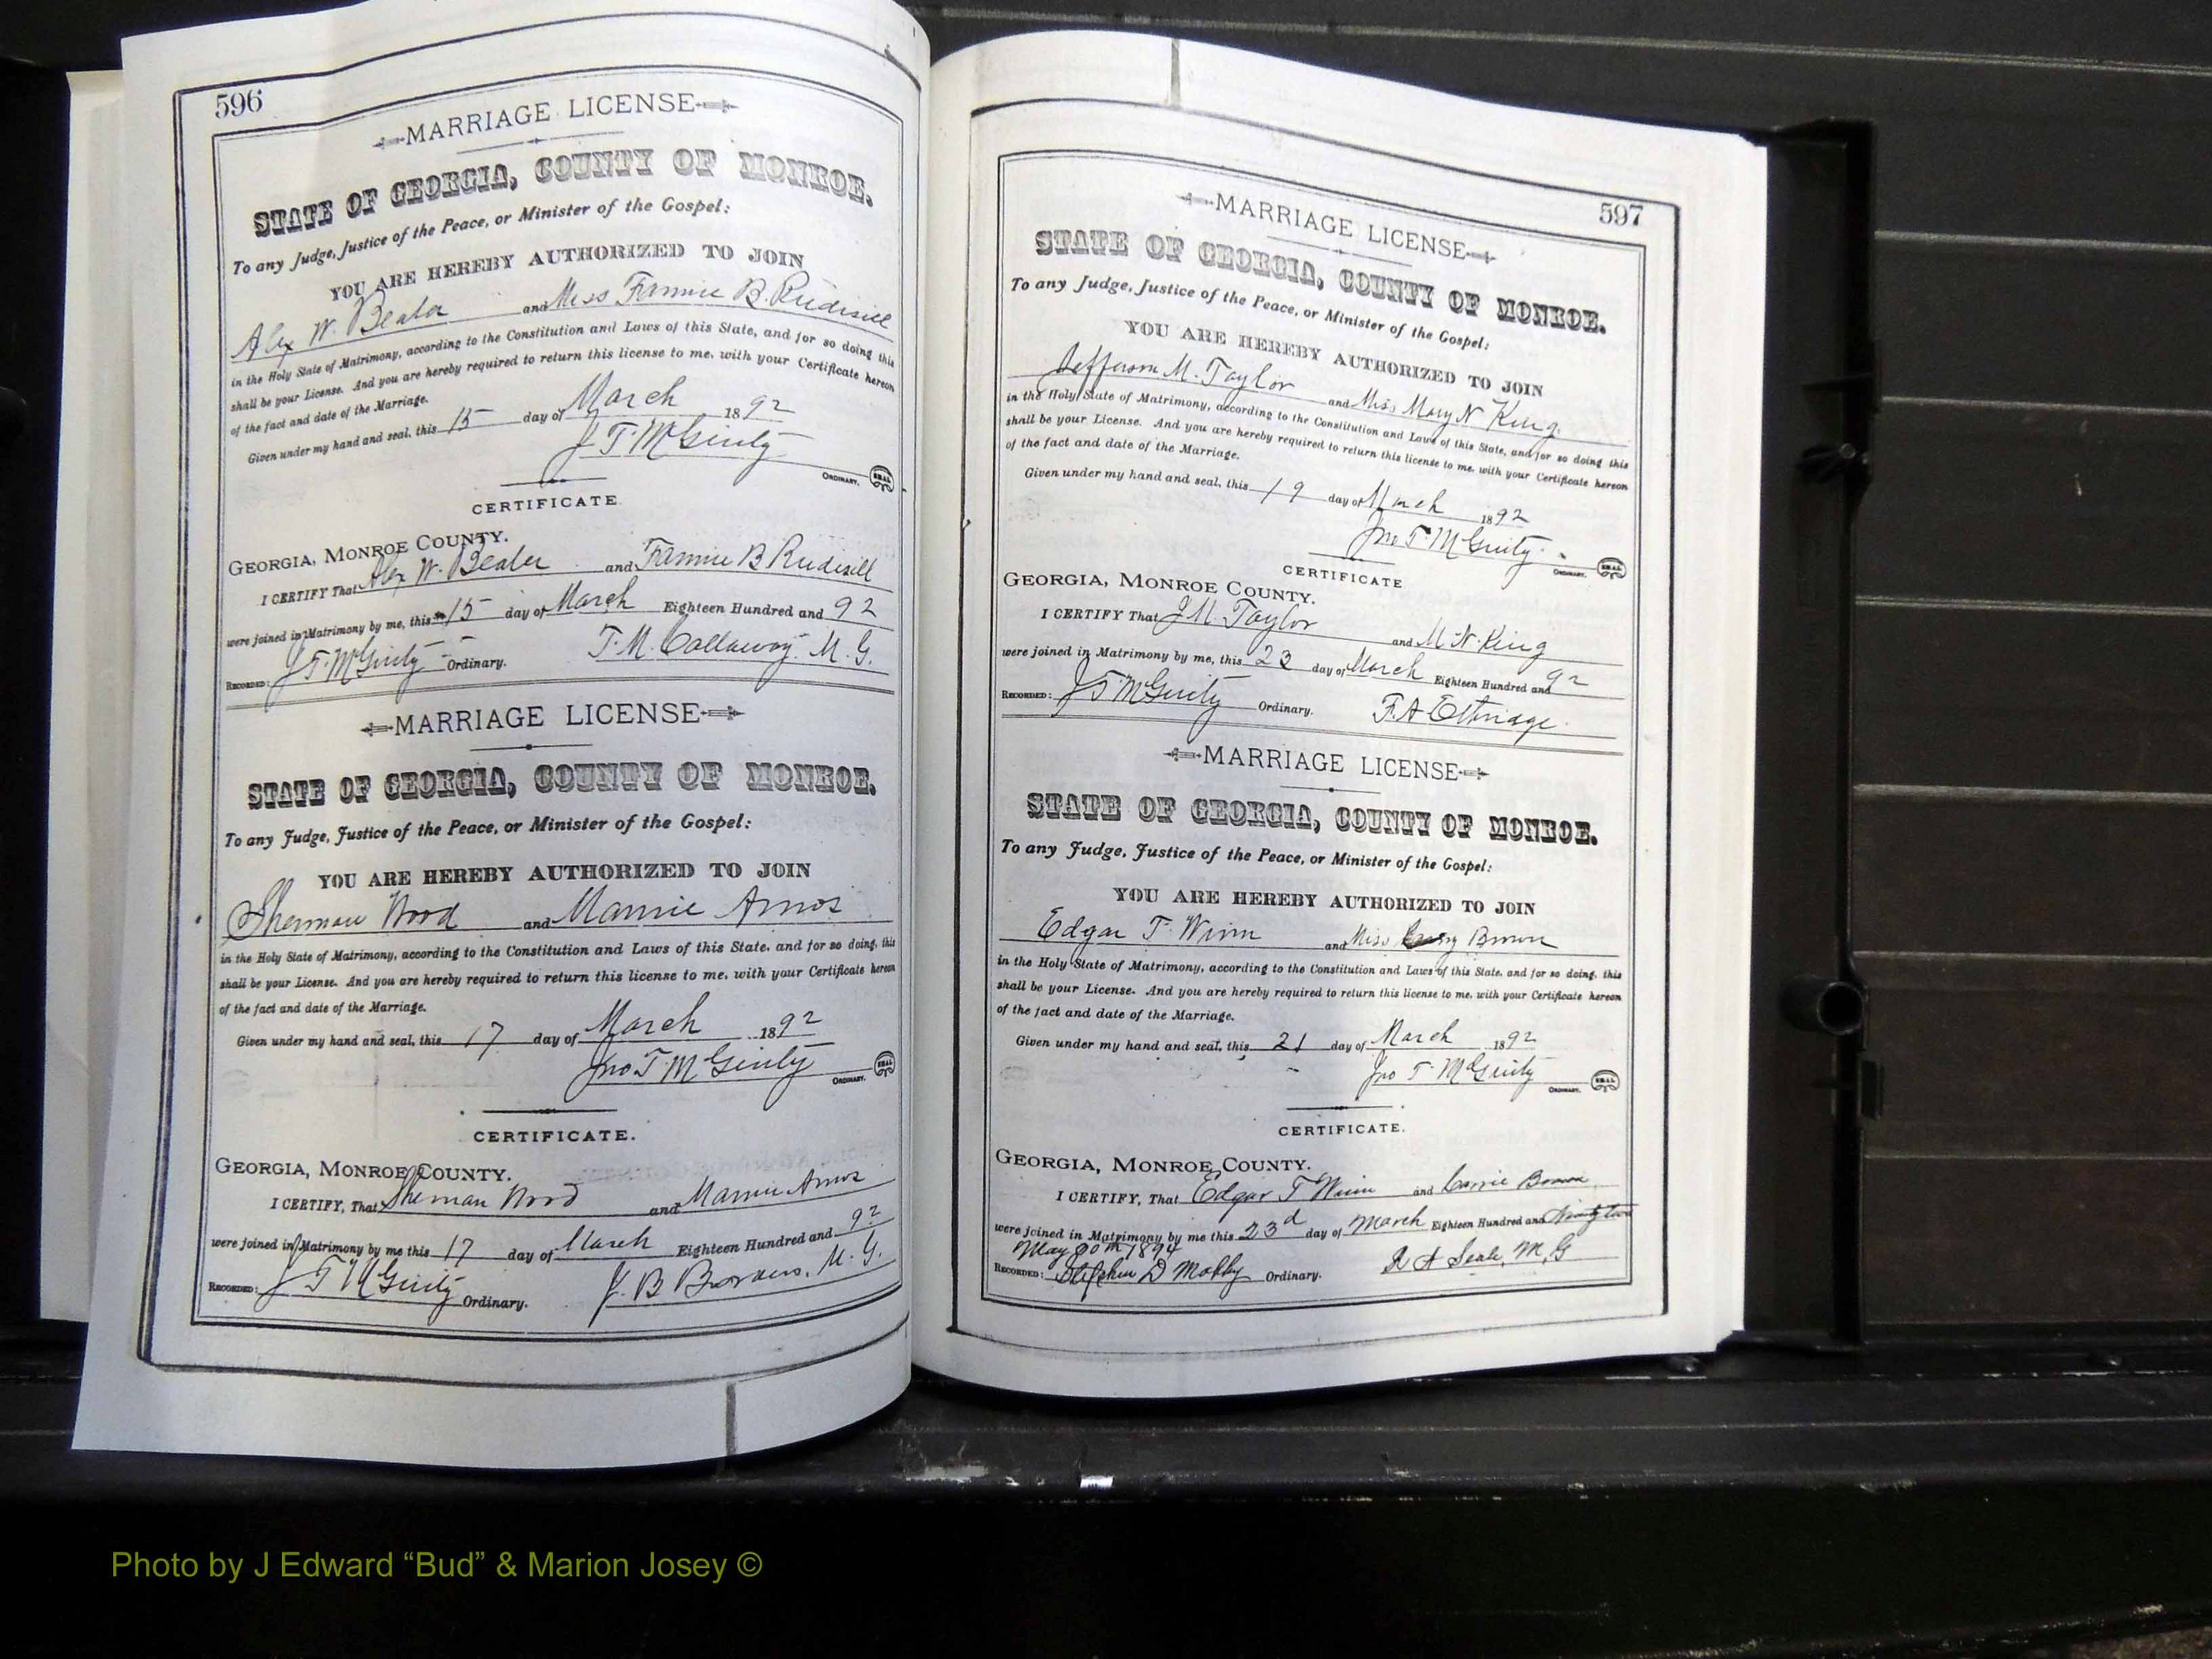 596
MARRIAGE LICENSE
STATE OF GEORGIA, COUNTY OF MONROE.
To any Judge, Justice of the Peace, or Minister of the Gospel:
YOU ARE HEREBY AUTHORIZED TO JOIN
Alex W. Bealer and Miss Fannie B. Rudisill
in the Holy State of Matrimony, according to the Constitution and Laws of this State, and for so doing this
shall be your License. And you are hereby required to return this license to me, with your Certificate hereon
of the fact and date of the Marriage.
Given under my hand and seal, this 15 day of March 1892
J. T. McGinty
ORDINARY. SEAL
CERTIFICATE.
GEORGIA, MONROE COUNTY.
I CERTIFY That Alex W. Bealer and Fannie B Rudisill
were joined in Matrimony by me, this 15 day of March Eighteen Hundred and 92
RECORDED: J T McGinty Ordinary. T. M. Callaway. M. G.
MARRIAGE LICENSE
STATE OF GEORGIA, COUNTY OF MONROE.
To any Judge, Justice of the Peace, or Minister of the Gospel:
YOU ARE HEREBY AUTHORIZED TO JOIN
Sherman Wood and Mamie Amos
in the Holy State of Matrimony, according to the Constitution and Laws of this State, and for so doing, this
shall be your License. And you are hereby required to return this license to me, with your Certificate hereon
of the fact and date of the Marriage.
Given under my hand and seal, this 17 day of March 1892
Jno T. McGinty
ORDINARY. SEAL
CERTIFICATE.
GEORGIA, MONROE COUNTY.
I CERTIFY, That Sherman Wood and Mamie Amos
were joined in Matrimony by me this 17 day of March Eighteen Hundred and 92
RECORDED: J T McGinty Ordinary. J. B. M. G.
597
MARRIAGE LICENSE
STATE OF GEORGIA, COUNTY OF MONROE.
To any Judge, Justice of the Peace, or Minister of the Gospel:
YOU ARE HEREBY AUTHORIZED TO JOIN
Jefferson M. Taylor and Miss Mary N King
in the Holy State of Matrimony, according to the Constitution and Laws of this State, and for so doing this
shall be your License. And you are hereby required to return this license to me, with your Certificate hereon
of the fact and date of the Marriage.
Given under my hand and seal, this 19 day of March 1892
Jno T. McGinty
ORDINARY. SEAL
CERTIFICATE
GEORGIA, MONROE COUNTY.
I CERTIFY That J M. Taylor and M N. King
were joined in Matrimony by me, this 23 day of March Eighteen Hundred and 92
RECORDED: J T McGinty Ordinary. F. A Ethridge.
MARRIAGE LICENSE
STATE OF GEORGIA, COUNTY OF MONROE.
To any Judge, Justice of the Peace, or Minister of the Gospel:
YOU ARE HEREBY AUTHORIZED TO JOIN
Edgar T. Winn and Miss Brown
in the Holy State of Matrimony, according to the Constitution and Laws of this State, and for so doing, this
shall be your License. And you are hereby required to return this license to me, with your Certificate hereon
of the fact and date of the Marriage.
Given under my hand and seal, this 21 day of March 1892
Jno T. McGinty
ORDINARY. SEAL
CERTIFICATE.
GEORGIA, MONROE COUNTY.
I CERTIFY, That Edgar T Winn and Carrie Brown
were joined in Matrimony by me this 23d day of March Eighteen Hundred and Ninety two
May 1894
RECORDED: Stephen D Mobley Ordinary. R A Seale, M, G
Photo by J Edward “Bud” & Marion Josey ©